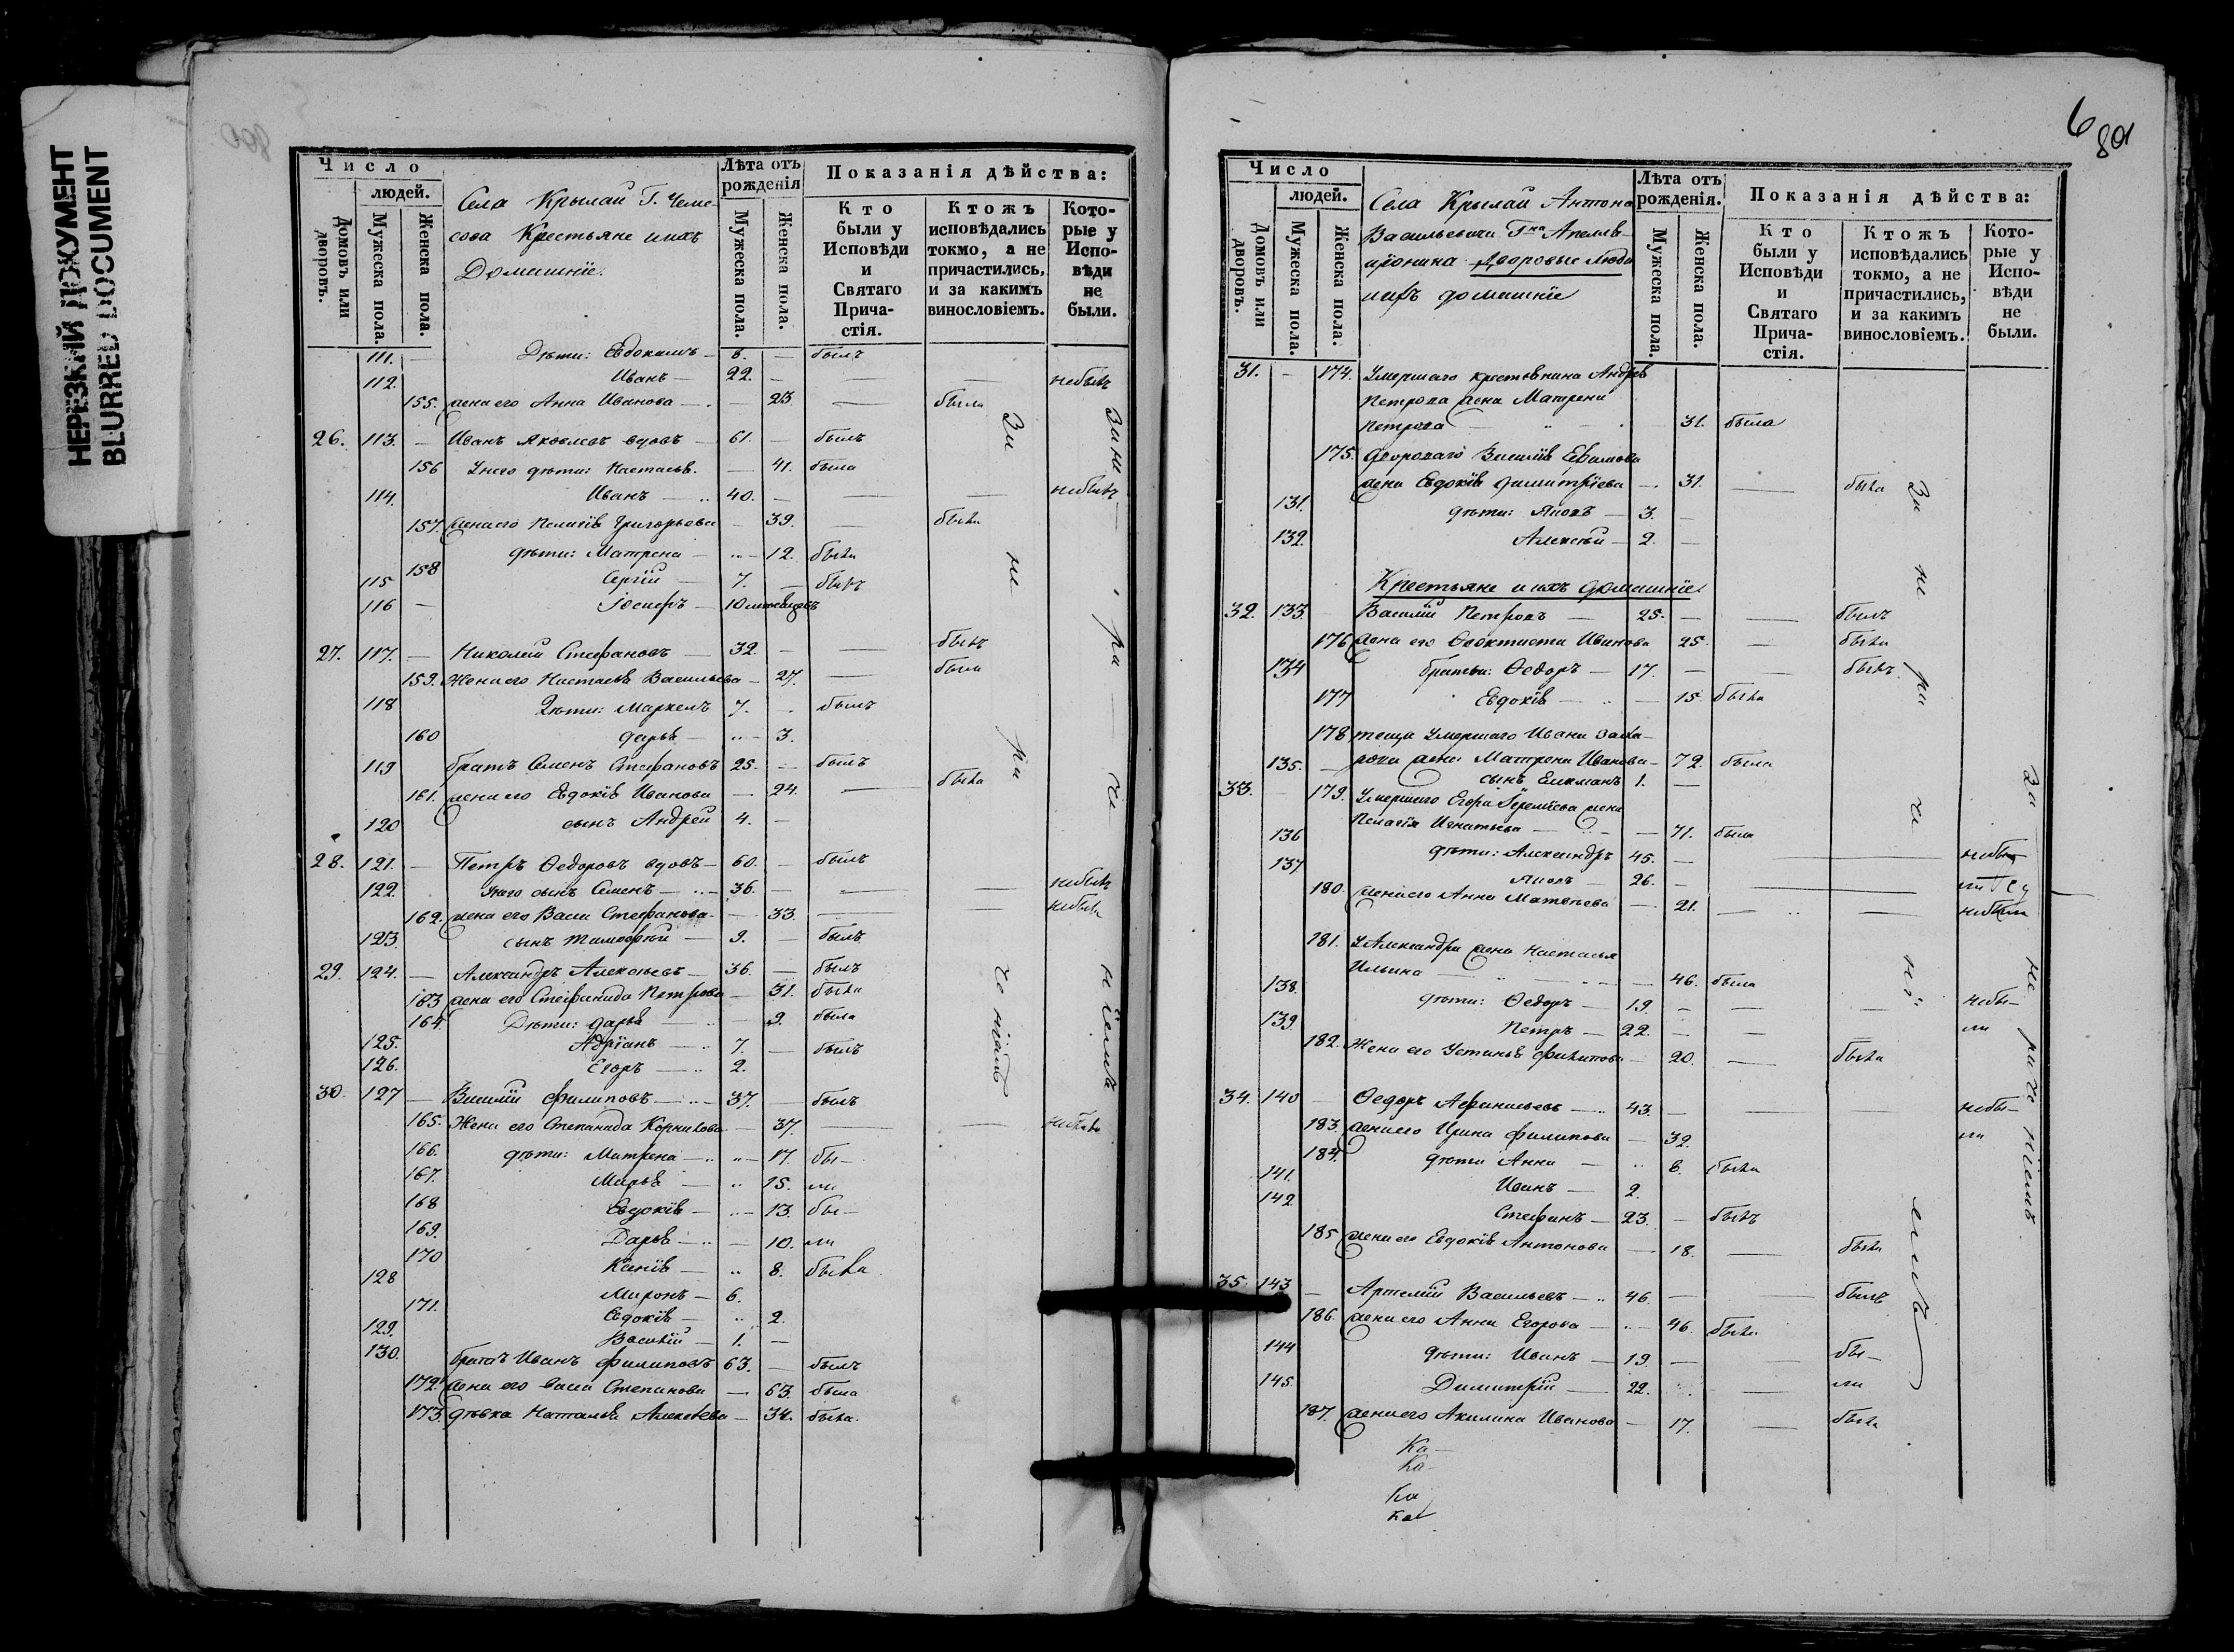 НЕРЕЗКИЙ ДОКУМЕНТ
BLURRED DOCUMENT
800
Число
людей.
Домовъ или дворовъ.
Мужеска пола.
Женска пола.
Села Крылай Г. Чеме-
сова Крестьяне и ихъ
Домашніе.
Лѣта отъ рожденія
Мужеска пола.
Женска пола.
Показанія дѣйства:
Кто были у Исповѣди и Святаго Прича-стія.
Ктожъ исповѣдались токмо, а не причастились, и за какимъ винословіемъ.
Кото-рые у Испо-вѣди не были.
111. — Дѣти: Евдокимъ — 8. — былъ
112. Иванъ — 22. — — — небылъ
155. жена его Анна Иванова — — 23. — была
26. 113. — Иванъ Яковлевъ вдовъ — 61. — былъ
156 У него дѣти: Настасья — 41. была
114. Иванъ — 40. — — — небылъ
157. жена его Пелагія Григорьева — 39. — была
158 дѣти: Матрена — 12. была
115 Сергій — 7. — былъ
116 — Іосифъ — 10 мѣсяцовъ
27. 117. — Николай Стефановъ — 32. — — былъ
159. Жена его Настасья Васильева — 27. — была
118 Дѣти: Маркелъ 7. — былъ
160 Дарья — 3.
119 братъ Семенъ Стефановъ 25. — былъ
161. жена его Евдокія Иванова — 24. — была
120 сынъ Андрей 4. —
28. 121. — Петръ Ѳедоровъ вдовъ — 60. — былъ
122. У него сынъ Семенъ — 36. — — — небылъ
162. жена его Васса Стефанова — 33. — — небыла
123. сынъ Тимофей — 9. — былъ
29. 124. — Александръ Алексѣевъ — 36. — былъ
163 жена его Стефанида Петрова — 31. была
164. Дѣти: Дарья — 9. была
125. Адріанъ — 7. — былъ
126. Егоръ — 2.
30. 127 — Василій Филиповъ — 37. — былъ
165. Жена его Степанида Корнилова — 37. — — небыла
166. дѣти: Матрена — 17. бы-
167. Марья — 15. ли
168 Евдокія — 13. бы-
169. Дарья — 10. ли
170 Ксенія — 8. была
128 Миронъ — 6.
171. Евдокія — 2.
129. Василій — 1. —
130. братъ Иванъ Филиповъ 63. — былъ
172. жена его Васса Степанова — 63. была
173. дѣвка Наталья Алексѣева — 34. была.
За не ра че ніемъ
За не ра че ніемъ
6
801
Число
людей.
Домовъ или дворовъ.
Мужеска пола.
Женска пола.
Села Крылай Антона
Васильевича Г-на Апелль-
Дворовые люди
ихъ домашніе
Лѣта отъ рожденія.
Мужеска пола.
Женска пола.
Показанія дѣйства:
Кто были у Исповѣди и Святаго Прича-стія.
Ктожъ исповѣдались токмо, а не причастились, и за какимъ винословіемъ.
Кото-рые у Испо-вѣди не были.
31. — 174. Умершаго крестьянина Андрея
Петрова жена Матрена
Петрова — 31. была
175. двороваго Василія Ефимова
жена Евдокія Димитріева — 31. — была
131. дѣти: Яковъ — 3. —
132. Алексѣй — 2. —
Крестьяне и ихъ домашніе
32. 133. Василій Петровъ — 25. — — былъ
176 жена его Ѳеоктиста Иванова 25. — была
134 братья: Ѳедоръ — 17. — — былъ
177 Евдокія — 15. была
178 теща умершаго Ивана Заха-
рова жена Матрена Иванова — 72. была
135. сынъ 1. —
33. — 179. Умершаго Егора Еремѣева жена
Пелагія Игнатьева — 71. была
136 дѣти: Александръ 45. — — небы-
137 Яковъ — 26. — — ли
180. жена его Анна Матвѣева — 21. — — небыла
181. У Александра жена Настасья
Ильина — 46. была
138. дѣти: Ѳедоръ — 19. — — — небы-
139. Петръ — 22. — — ли
182. Жена его Устинья Филипова — 20. — была
34. 140 — Ѳедоръ Афанасьевъ — 43. — — небы-
183. жена его Ирина Филипова — 32. ли
184. дѣти Анна — 8. была
141. Иванъ — 2.
142 Стефанъ — 23. — былъ
185 жена его Евдокія Антонова — 18. — была
35. 143 — Артемій Васильевъ — 46. — — былъ
186. жена его Анна Егорова — 46. была
144 дѣти: Иванъ — 19. — — бы-
145. Димитрій — 22. — ли
187. жена его Акилина Иванова — 17. — была
Ка-
Ка-
Ка
Ка
За не ра че ніемъ
За не раче ніемъ